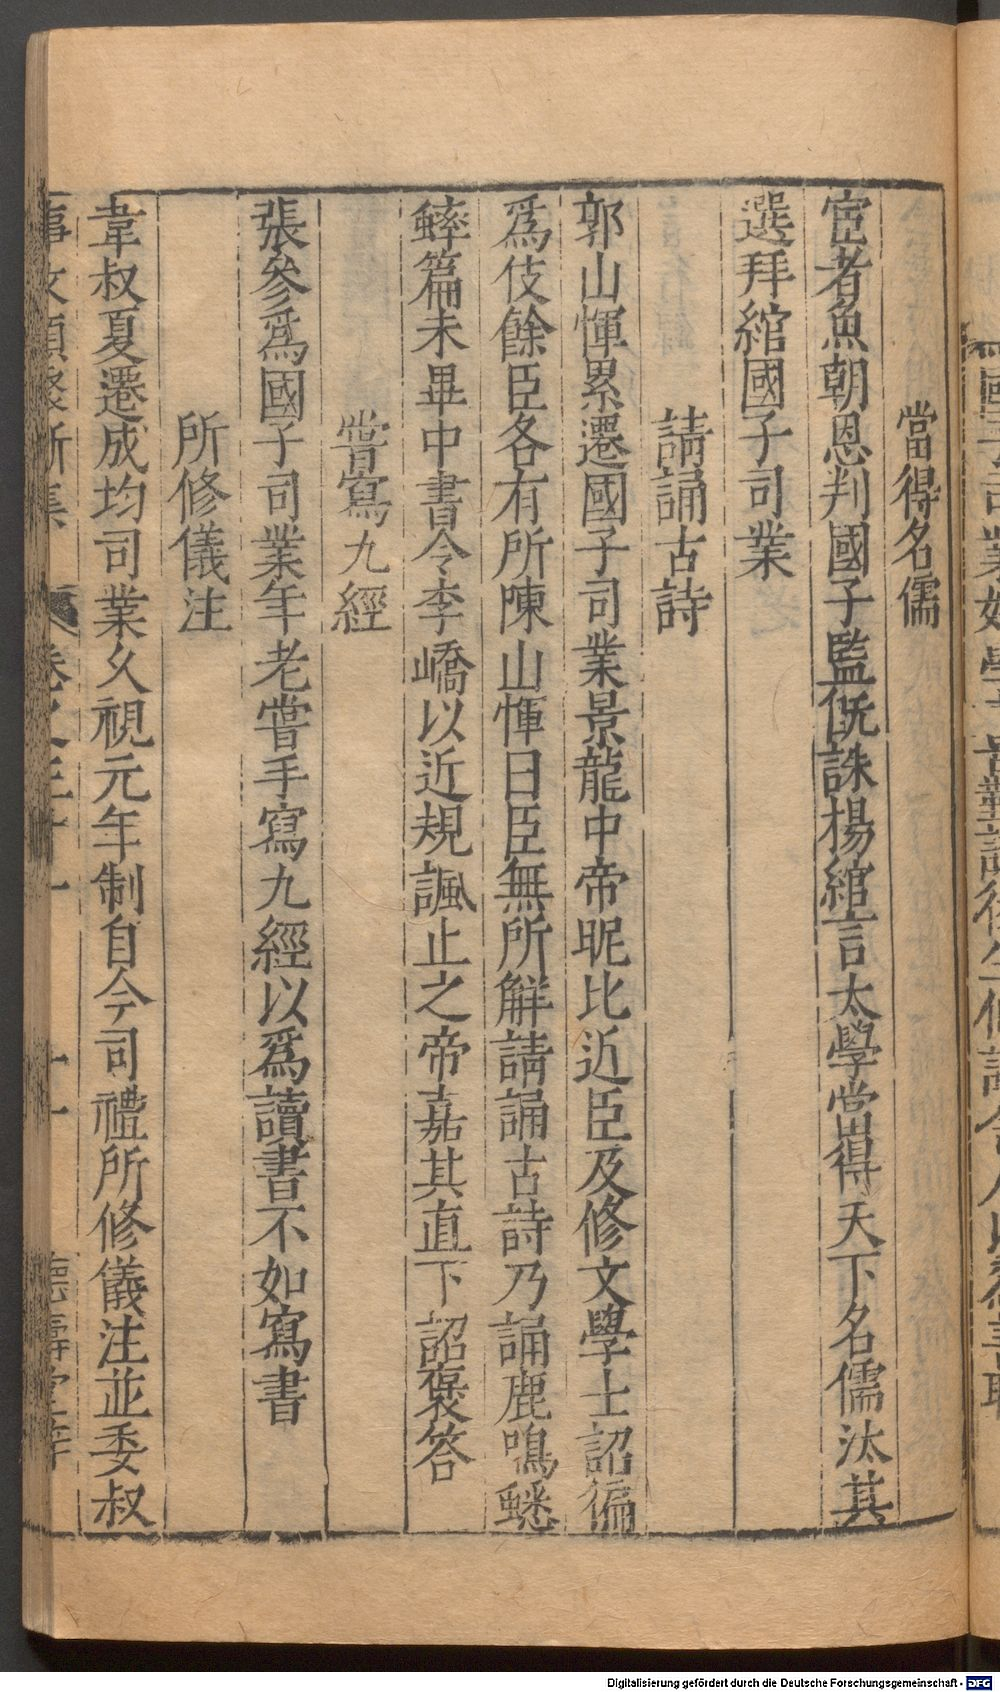 當得名儒
宦者魚朝恩判國子監旣誅楊綰言太學當得天下名儒汰其
選拜綰國子司業
請誦古詩
郭山惲累遷國子司業景龍中帝昵比近臣及修文學士詔徧
爲伎餘臣各有所陳山惲曰臣無所解請誦古詩乃誦鹿鳴蟋
蟀篇未畢中書令李嶠以近規諷止之帝嘉其直下詔褒答
嘗寫九經
張參爲國子司業年老嘗手寫九經以爲讀書不如寫書
所修儀注
韋叔夏遷成均司業久視元年制自今司禮所修儀注並委叔
Digitalisierung gefördert durch die Deutsche Forschungsgemeinschaft - DFG